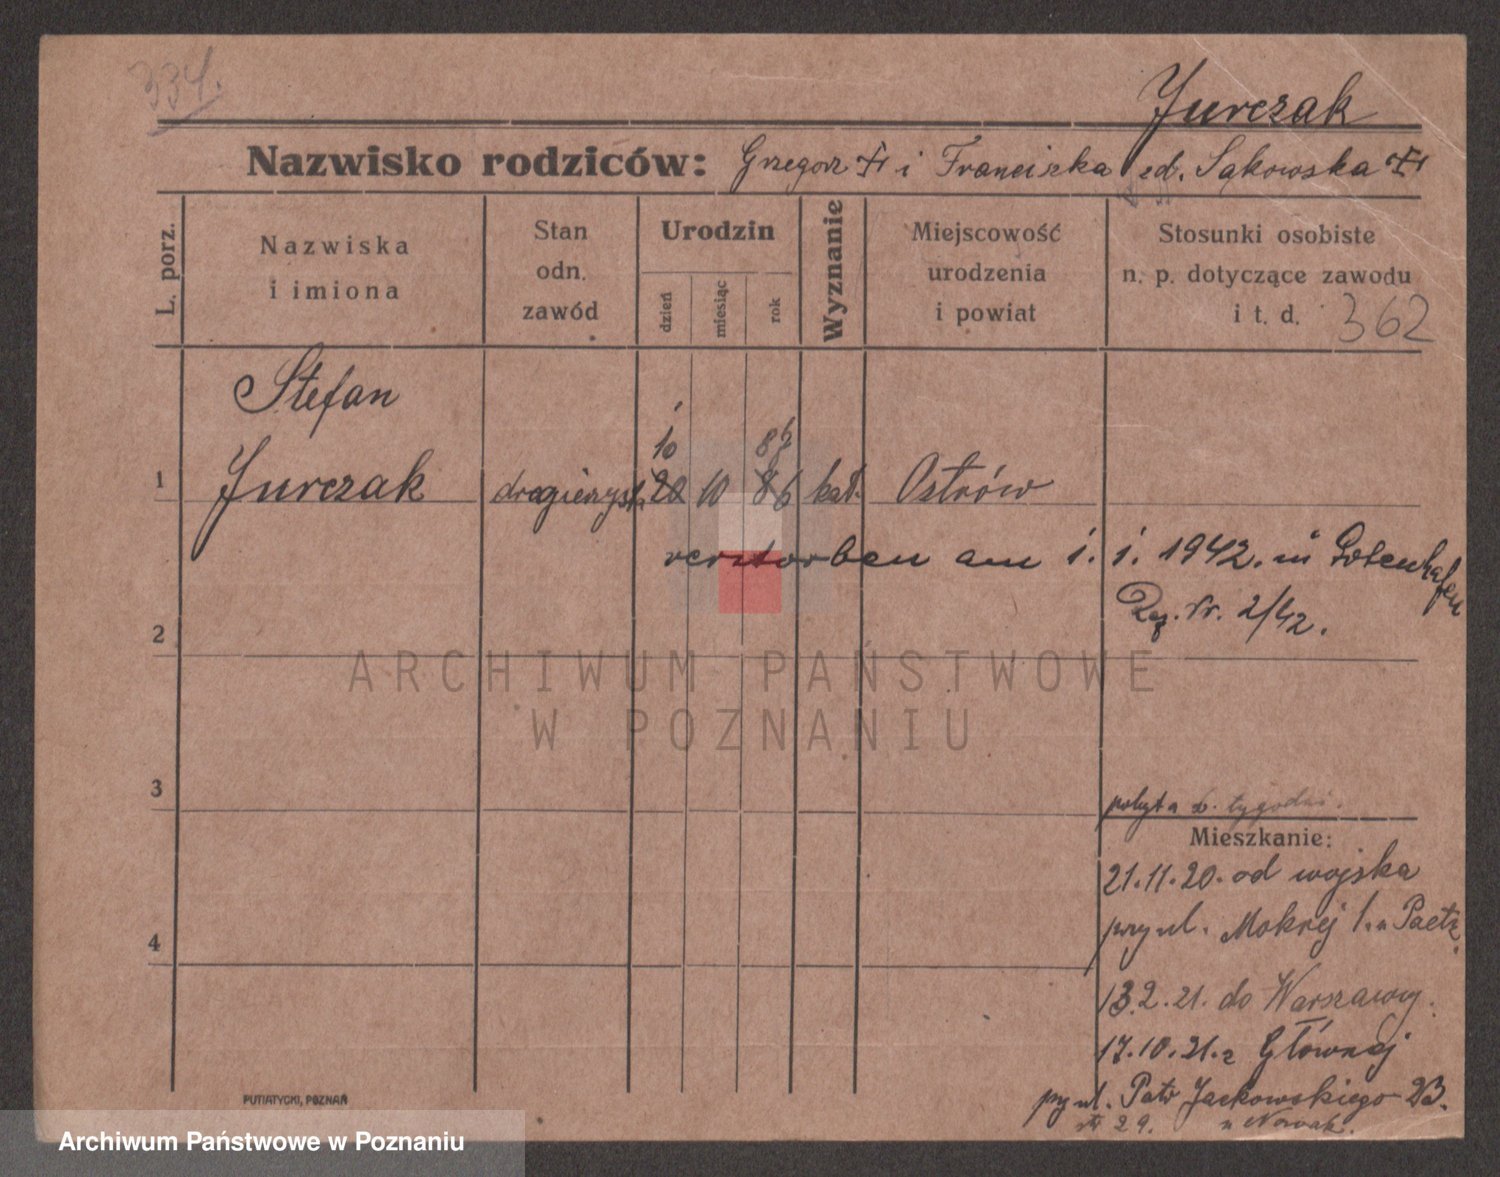 334.
Jurczak
Nazwisko rodziców: Grzegorz i Franciszka zd. Sąkowska
L. porz.
Nazwiska
i imiona
Stan
odn.
zawód
Urodzin
dzień
miesiąc
rok
Wyznanie
Miejscowość
urodzenia
i powiat
Stosunki osobiste
n. p. dotyczące zawodu
i t. d. 362
Stefan
10 87
1 Jurczak 20 10 86 kat. Ostrów
verstorben am 1. 1. 1942. in Gotenhafen
Reg. Nr. 2/42.
2
3
pobyt tygodni.
Mieszkanie:
21.11.20. od wojska
przy ul. Mokrej 1. u Paetz.
4
13.2.21. do Warszawy.
17.10.21. z Głównej
przy ul. Patr Jackowskiego 23.
29. u Nowak.
PUTIATYCKI, POZNAŃ
ARCHIWUM PAŃSTWOWE
W POZNANIU
Archiwum Państwowe w Poznaniu